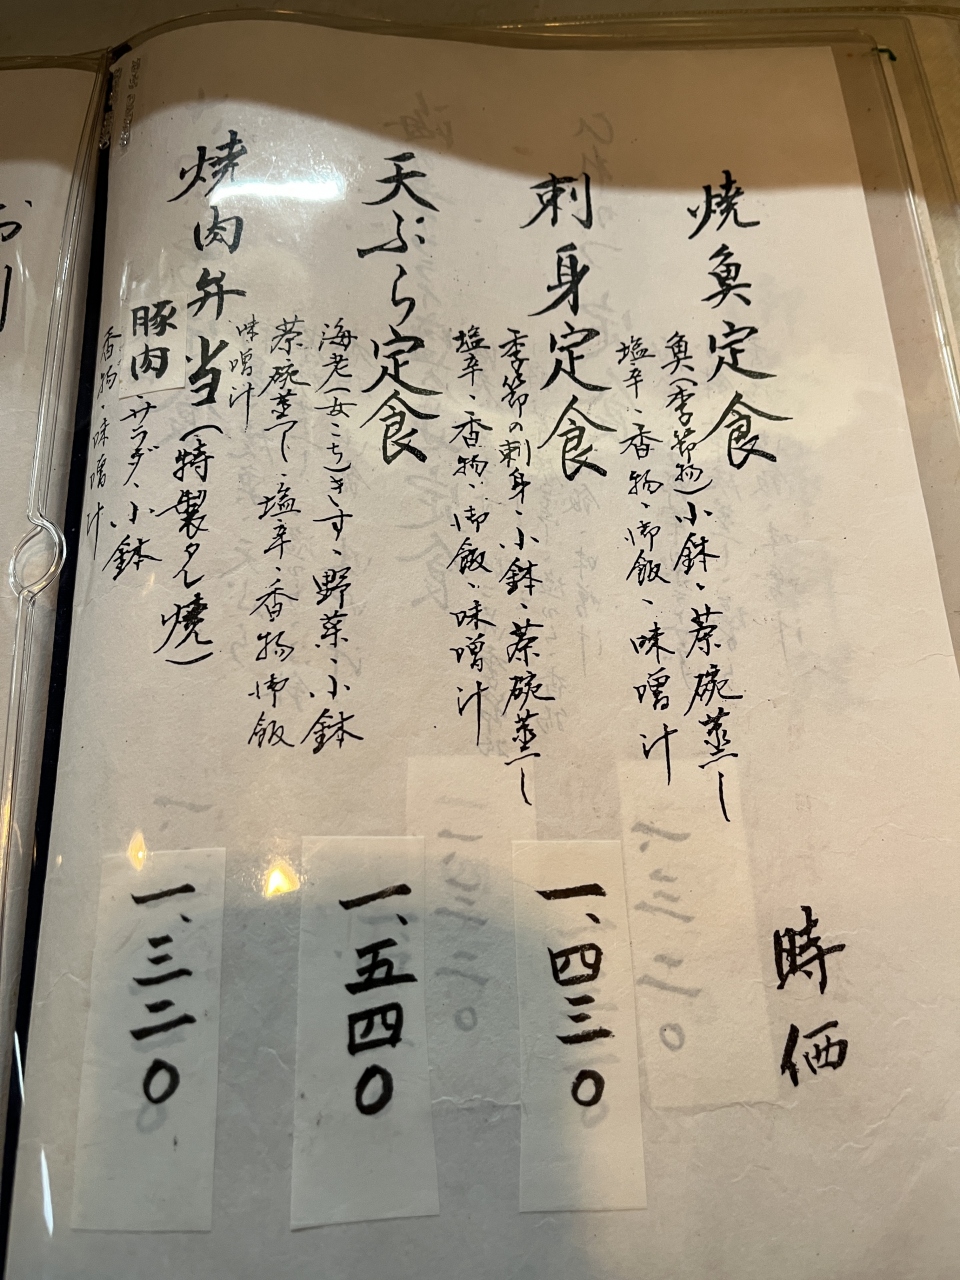 焼魚定食
魚(季節物)小鉢、茶碗蒸し
塩辛、香物、御飯、味噌汁
時価
刺身定食
季節の刺身、小鉢、茶碗蒸し
塩辛、香物、御飯、味噌汁
一、四三〇
天ぷら定食
海老(女こちきす、野菜、小鉢
茶碗蒸し、塩辛、香物御飯
味噌汁
一、五四〇
焼肉弁当(特製タレ焼)
豚肉、サラダ、小鉢
香物、味噌汁
一、三二〇